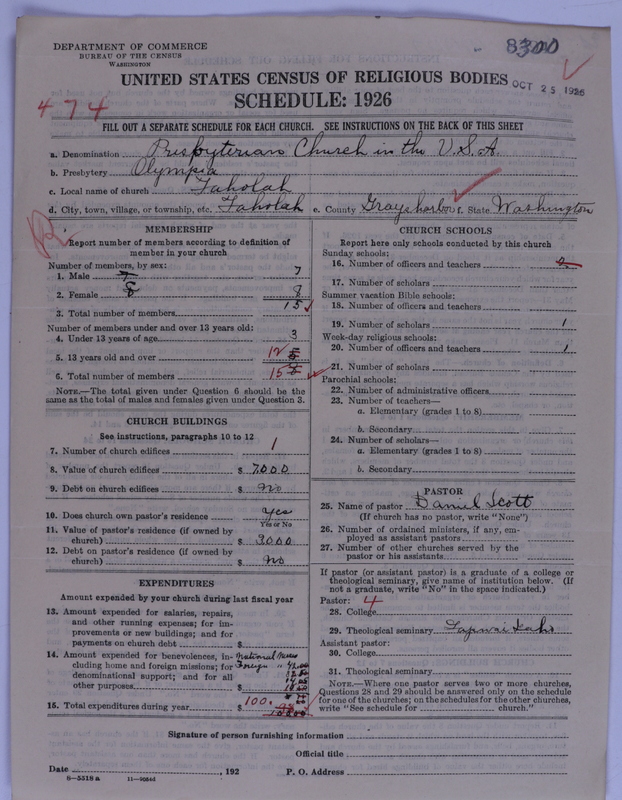 DEPARTMENT OF COMMERCE
BUREAU OF THE CENSUS
WASHINGTON
8300
UNITED STATES CENSUS OF RELIGIOUS BODIES
OCT 25 1926
SCHEDULE: 1926
474
FILL OUT A SEPARATE SCHEDULE FOR EACH CHURCH. SEE INSTRUCTIONS ON THE BACK OF THIS SHEET
a. Denomination Presbyterian Church in the U.S.A.
b. Presbytery Olympia
c. Local name of church Taholah
d. City, town, village, or township, etc. Taholah e. County Graysharbor f. State Washington
MEMBERSHIP
Report number of members according to definition of
member in your church
Number of members, by sex:
1. Male 7 7
2. Female 8 8
3. Total number of members 15
Number of members under and over 13 years old:
4. Under 13 years of age 3
5. 13 years old and over 12
6. Total number of members 15
NOTE.—The total given under Question 6 should be the
same as the total of males and females given under Question 3.
CHURCH BUILDINGS
See instructions, paragraphs 10 to 12
7. Number of church edifices 1
8. Value of church edifices $ 7000
9. Debt on church edifices $ No
10. Does church own pastor's residence Yes
Yes or No
11. Value of pastor's residence (if owned by
church) $ 3000
12. Debt on pastor's residence (if owned by
church) $ No
EXPENDITURES
Amount expended by your church during last fiscal year
13. Amount expended for salaries, repairs,
and other running expenses; for im-
provements or new buildings; and for
payments on church debt $
14. Amount expended for benevolences, in-
cluding home and foreign missions; for
denominational support; and for all
other purposes National
Foreign
15. Total expenditures during year $ 100.
CHURCH SCHOOLS
Report here only schools conducted by this church
Sunday schools:
16. Number of officers and teachers
17. Number of scholars
Summer vacation Bible schools:
18. Number of officers and teachers
19. Number of scholars 1
Week-day religious schools:
20. Number of officers and teachers 1
21. Number of scholars
Parochial schools:
22. Number of administrative officers
23. Number of teachers—
a. Elementary (grades 1 to 8)
b. Secondary
24. Number of scholars—
a. Elementary (grades 1 to 8)
b. Secondary
PASTOR
25. Name of pastor Daniel Scott
(If church has no pastor, write "None")
26. Number of ordained ministers, if any, em-
ployed as assistant pastors
27. Number of other churches served by the
pastor or his assistants
If pastor (or assistant pastor) is a graduate of a college or
theological seminary, give name of institution below. (If
not a graduate, write "No" in the space indicated.)
Pastor: 4
28. College
29. Theological seminary Lapwai Idaho
Assistant pastor:
30. College
31. Theological seminary
NOTE.—Where one pastor serves two or more churches,
Questions 28 and 29 should be answered only on the schedule
for one of the churches; on the schedules for the other churches,
write "See schedule for church."
Signature of person furnishing information
Official title
Date , 192 P. O. Address
8—5518a 11—9034d